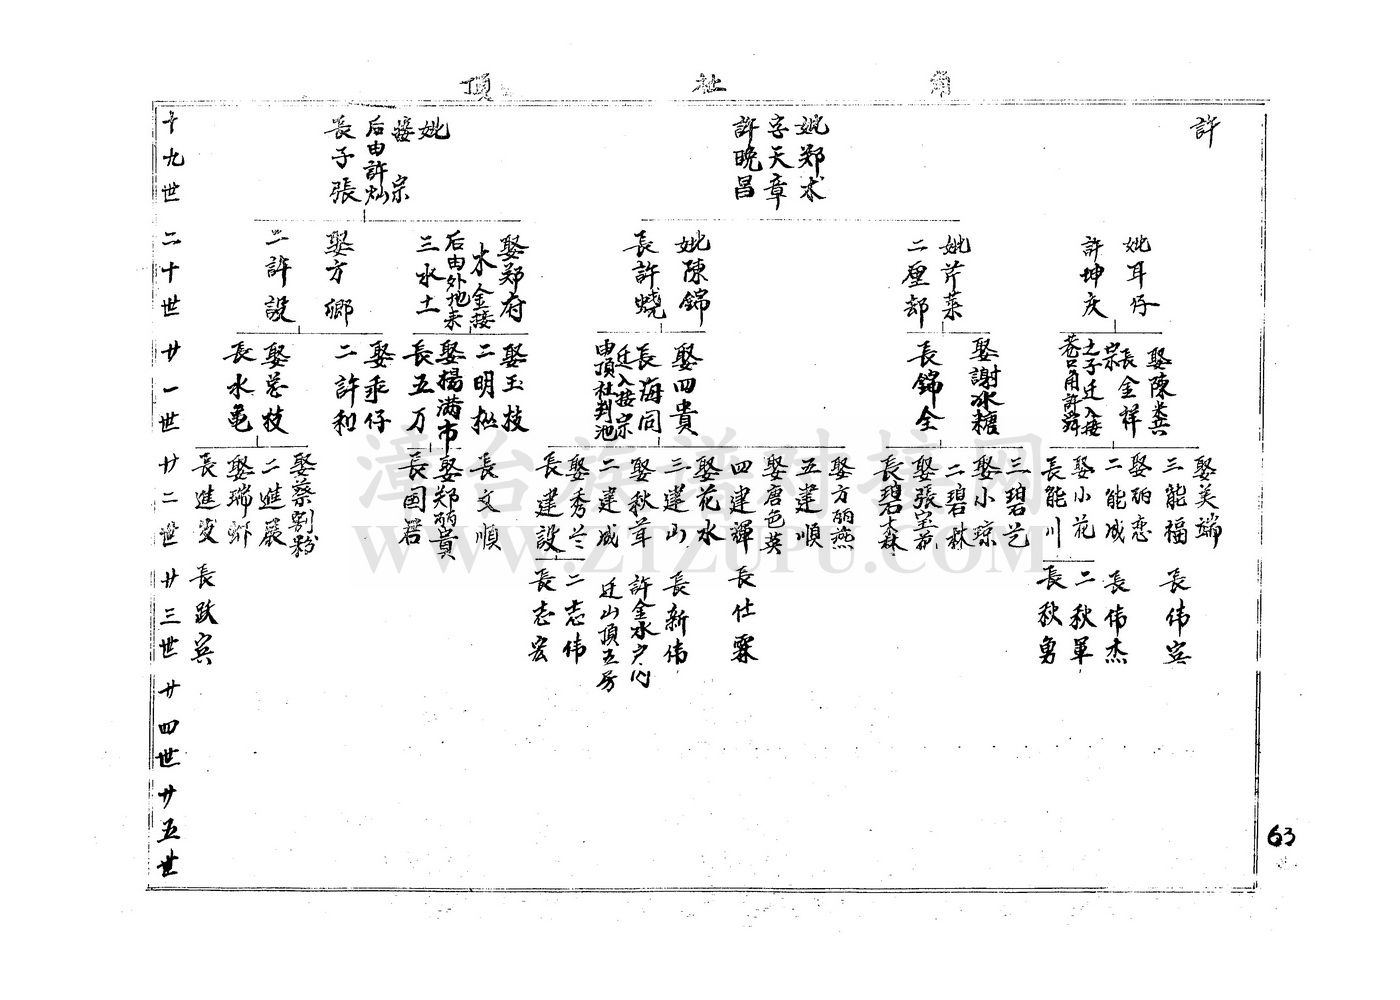 角 社 頂
許
妣郑术
字天章
許晚昌
妣
接宗
后由許灿
長子張
十九世
妣耳仔
許坤庆
妣芹菜
二厘却
妣陳錦
長許蟯
娶郑府
木金接
后由外地来
三水土
娶方卿
二許設
二十世
娶陳粪
長金祥
宗
之子迁入接
巷口角許舜
娶謝冰糖
長錦全
娶四貴
長海同
迁入接宗
由頂社判池
娶玉枝
二明松
娶楊满市
長五万
娶乖仔
二許和
娶花枝
長水龟
廿一世
娶美端
三能福
娶丽恋
二能成
娶小花
長能川
三碧艺
娶小琼
二碧林
娶張宝
長碧森
娶方丽燕
五建順
娶唐色英
四建輝
娶花水
三建山
娶秋茸
二建成
娶秀兰
長建設
長文順
娶郑丽貴
長国
娶蔡
二進展
娶瑞
長進
廿二世
長伟宾
長伟杰
二秋軍
長秋勇
長仕霖
長新伟
許金水户内
迁山頂五房
二志伟
長志宏
長跃宾
廿三世
廿四世
廿五世
63
漳台族谱对接网
WWW.ZTZUPU.COM